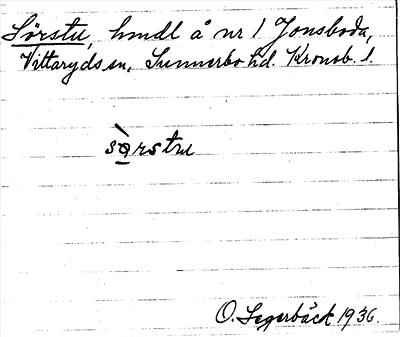 Sörstu, hmdl å nr 1 Jonsboda,
Vittaryds sn, Sunnerbo hd. Kronob. l.
sə̀rstu
O. Segerbäck 1936.